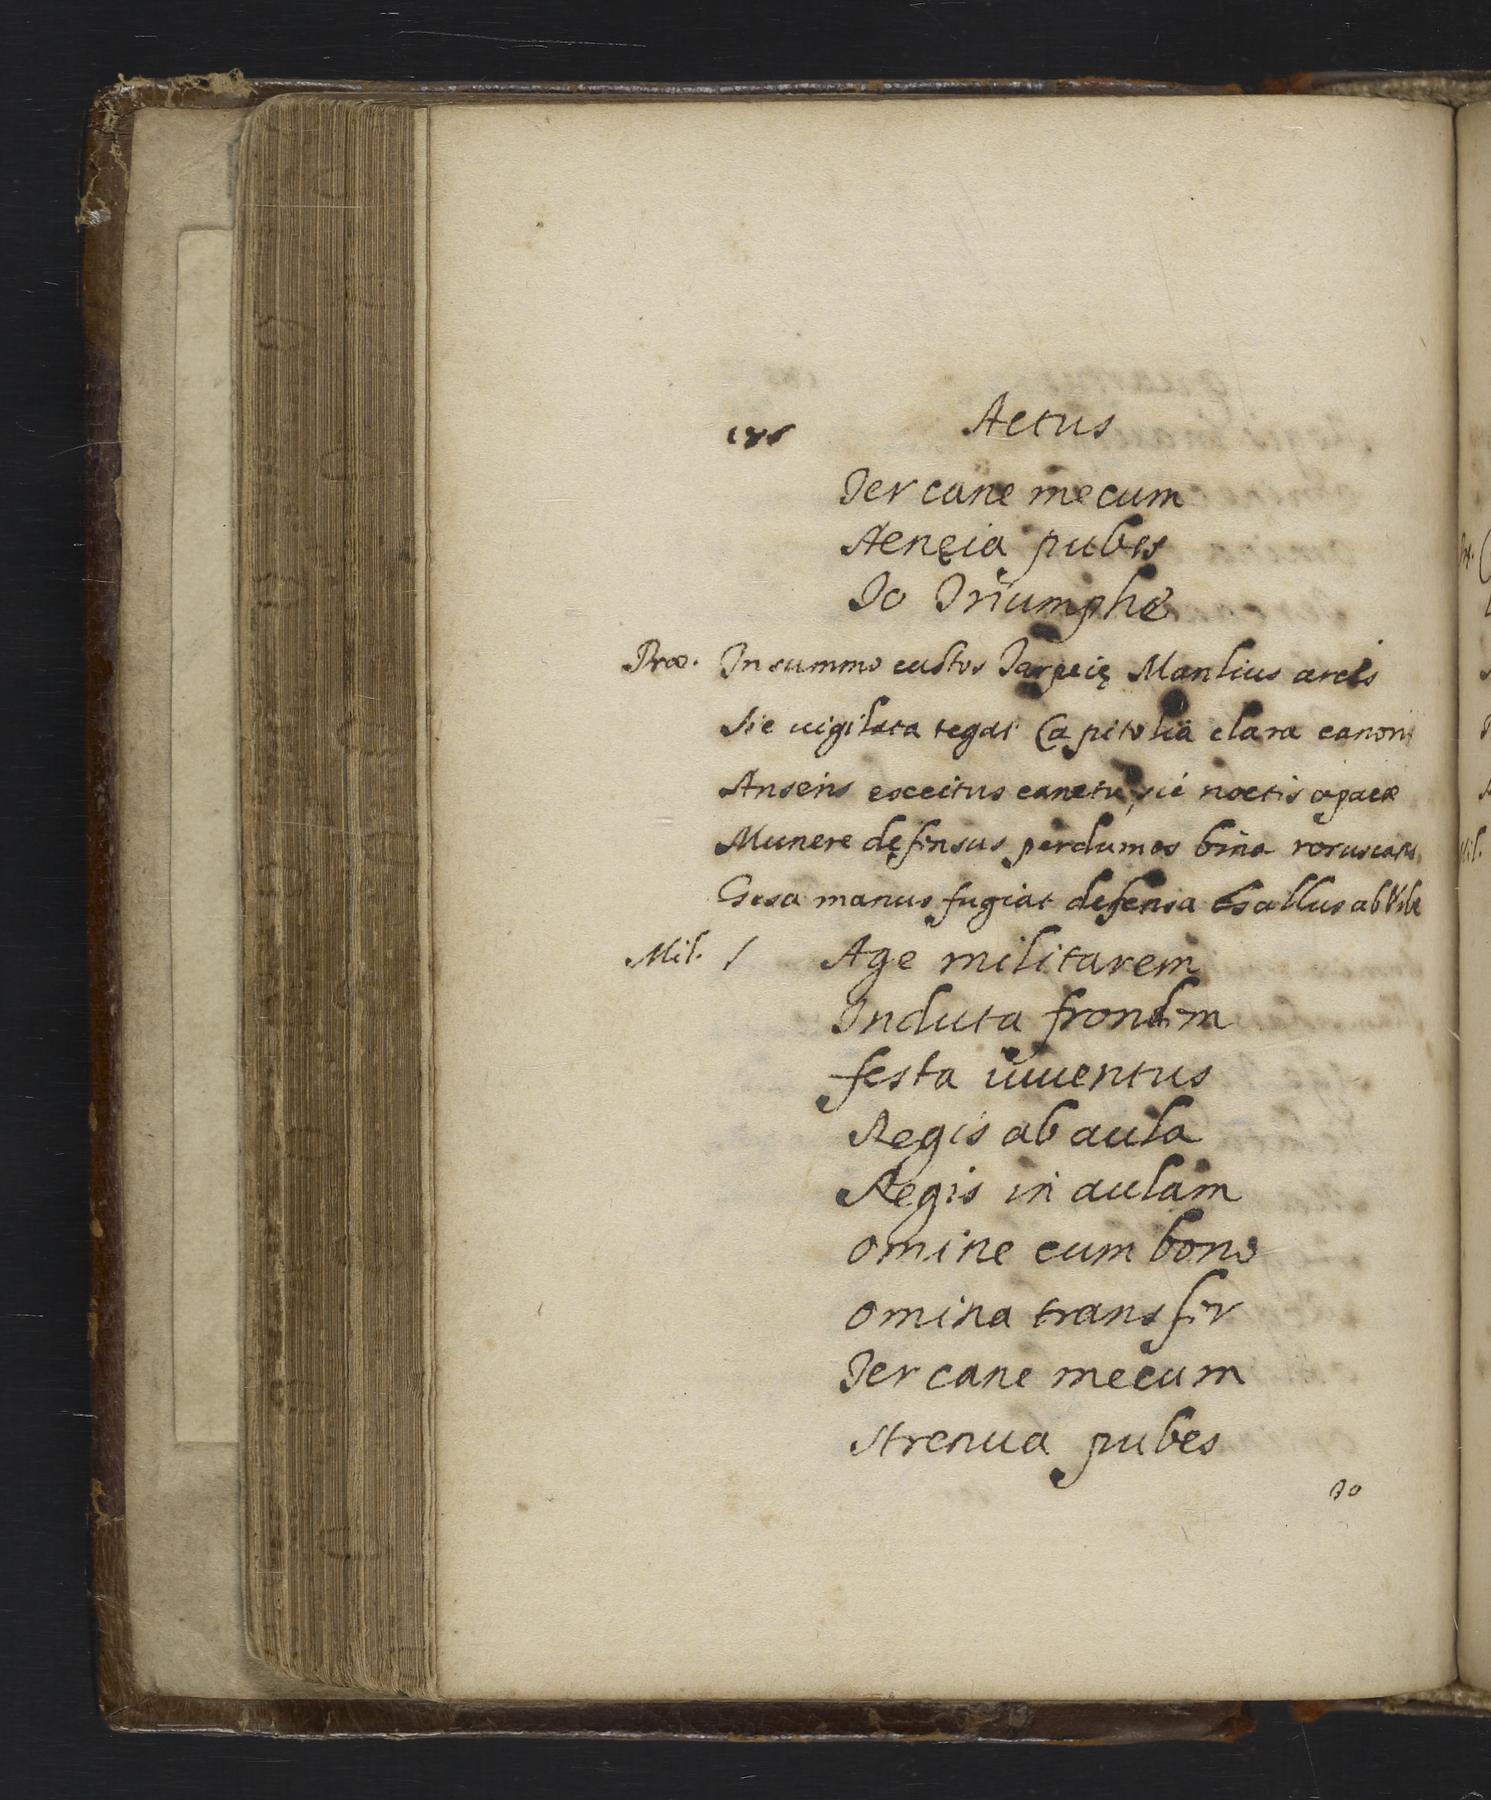 186 Actus
Ter cane mecum
Aenęia pubes
Io Triumphe
Prae. In summo custos Tarpeię Manlius arcis
Sic uigilata tegat Capitolia clara canoni
Anseris excitus cantu, sic noctis opacae
Munere dęfensus per dumos bina coruscans
Gesa manus fugiat defensa Gallus ab Vrbe
Mil. / Age militarem
Induta frondem
festa iuuentus
Regis ab aula
Regis in aulam
omine cum bono
omina transfer
Ter cane mecum
strenua pubes
Io